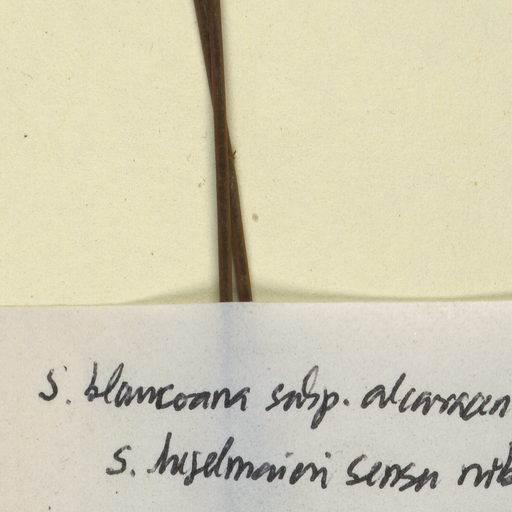 S. blancoana subsp. alcaracen
S. hegelmaieri sensu